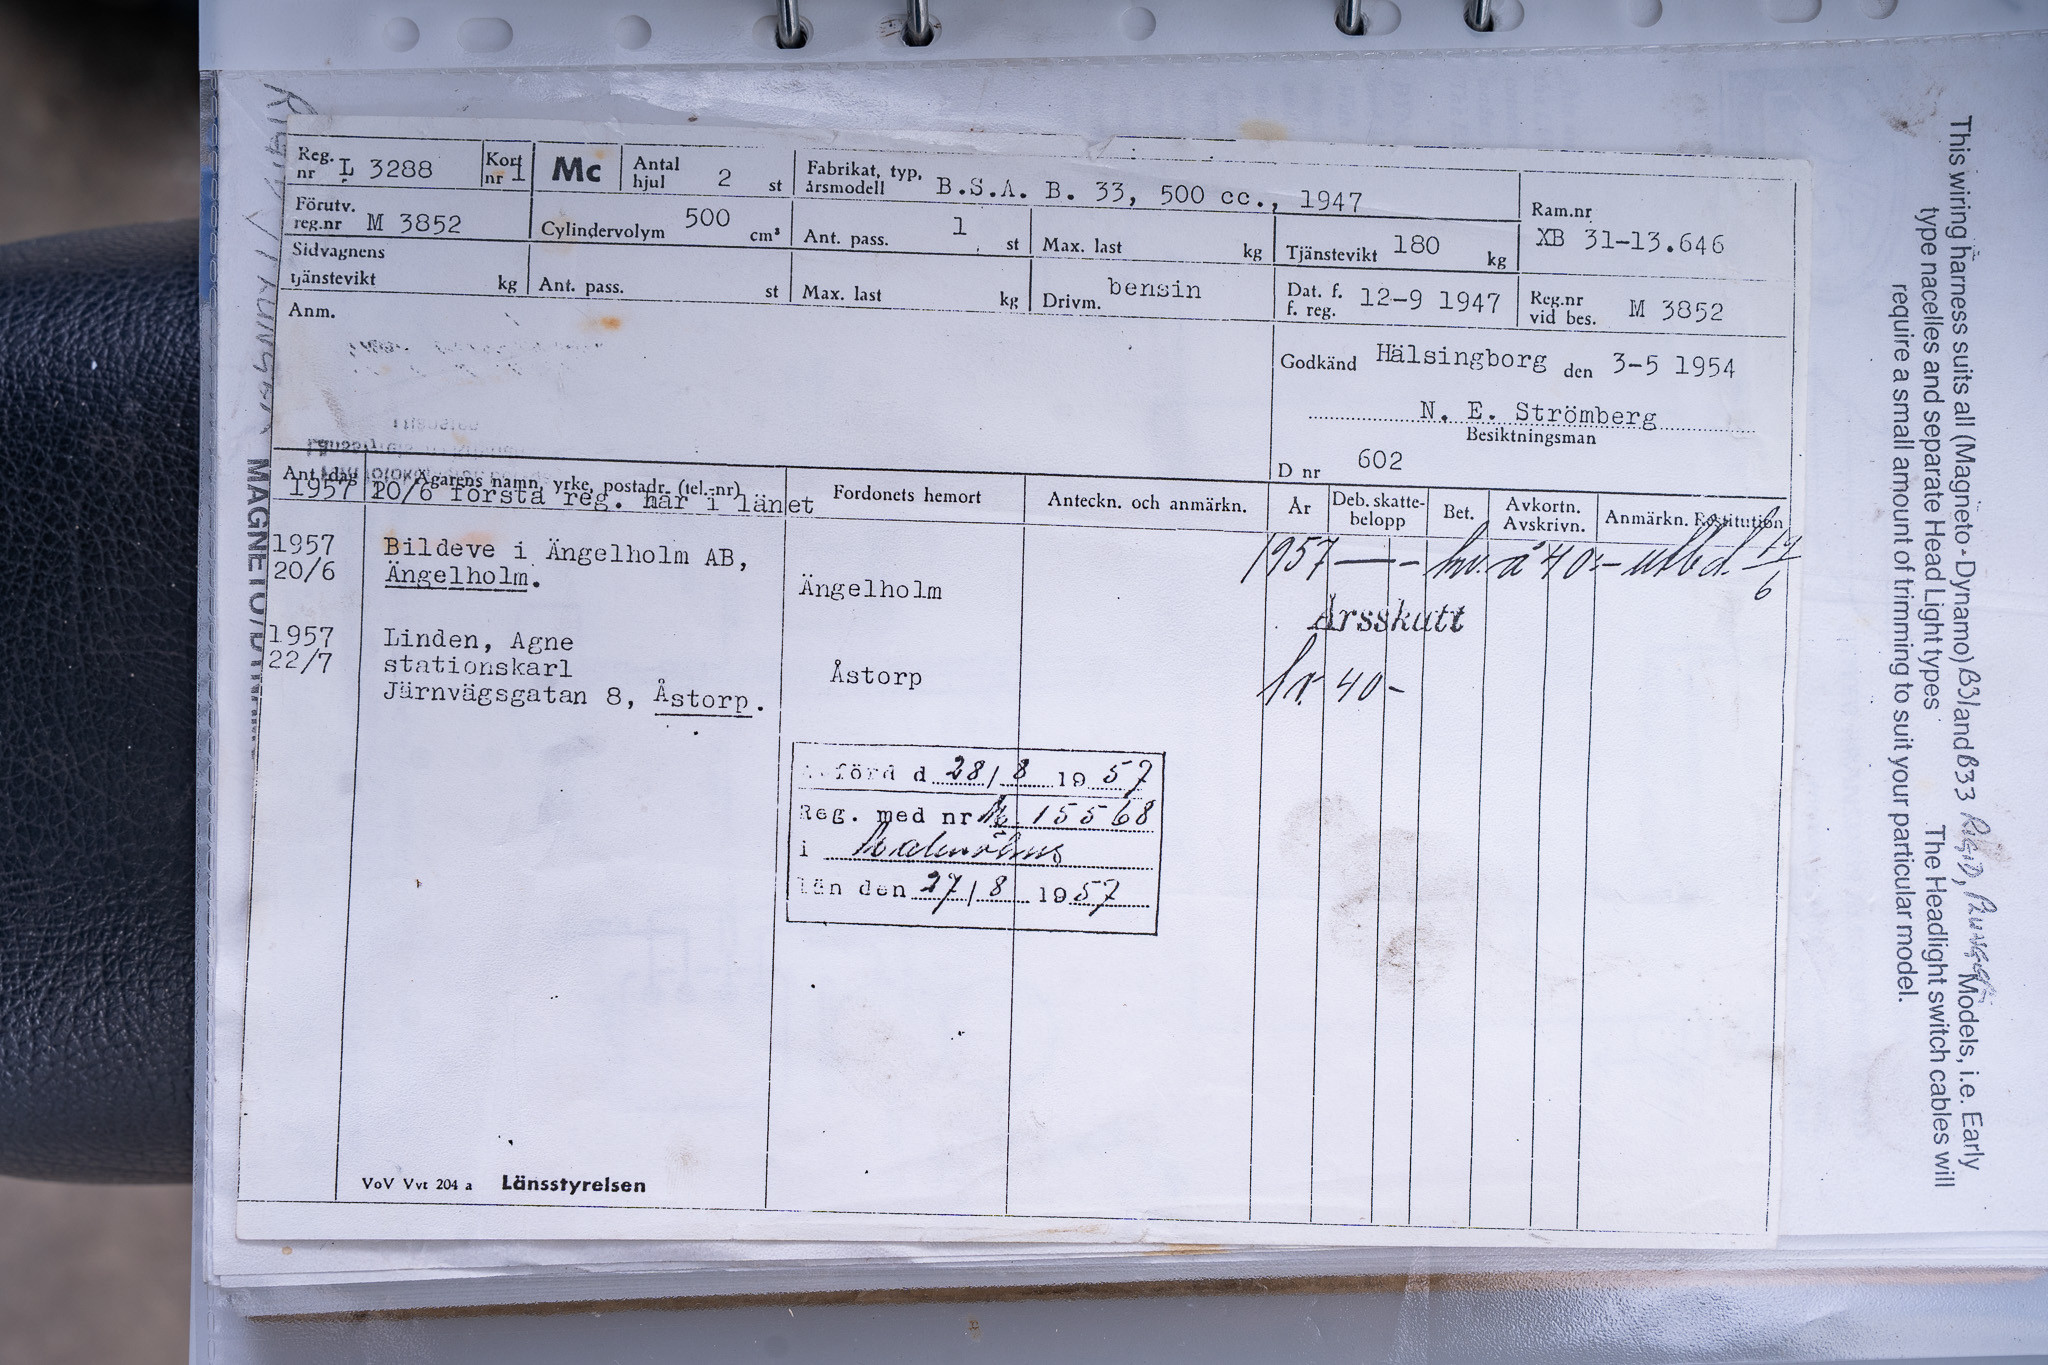 Reg. nr L 3288 Kort nr 1 Mc Antal hjul 2 st Fabrikat, typ, årsmodell B.S.A. B. 33, 500 cc., 1947
Förutv. reg.nr M 3852 Cylindervolym 500 cm³ Ant. pass. 1 st Max. last kg Tjänstevikt 180 kg Ram.nr XB 31-13.646
Sidvagnens tjänstevikt kg Ant. pass. st Max. last kg Drivm. bensin Dat. f. f. reg. 12-9 1947 Reg.nr vid bes. M 3852
Anm.
Godkänd Hälsingborg den 3-5 1954
N. E. Strömberg
Besiktningsman
D nr 602
Ant. dag Ägarens namn, yrke, postadr. (tel.-nr) Fordonets hemort Anteckn. och anmärkn. År Deb. skatte-belopp Bet. Avkortn. Avskrivn. Anmärkn. Restitution
1957 20/6 första reg. här i länet
1957 20/6 Bildeve i Ängelholm AB,
Ängelholm. Ängelholm 1957 — - å 40:-
Årsskatt
1957 22/7 Linden, Agne
stationskarl Åstorp kr 40-
Järnvägsgatan 8, Åstorp.
Avförd d 28/8 1957
Reg. med nr M 15568
i Malmöhus
län den 27/8 1957
VoV Vvt 204 a Länsstyrelsen
This wiring harness suits all (Magneto - Dynamo) B31 and B33 RIGID, PLUNGER Models, i.e. Early
type nacelles and separate Head Light types The Headlight switch cables will
require a small amount of trimming to suit your particular model.